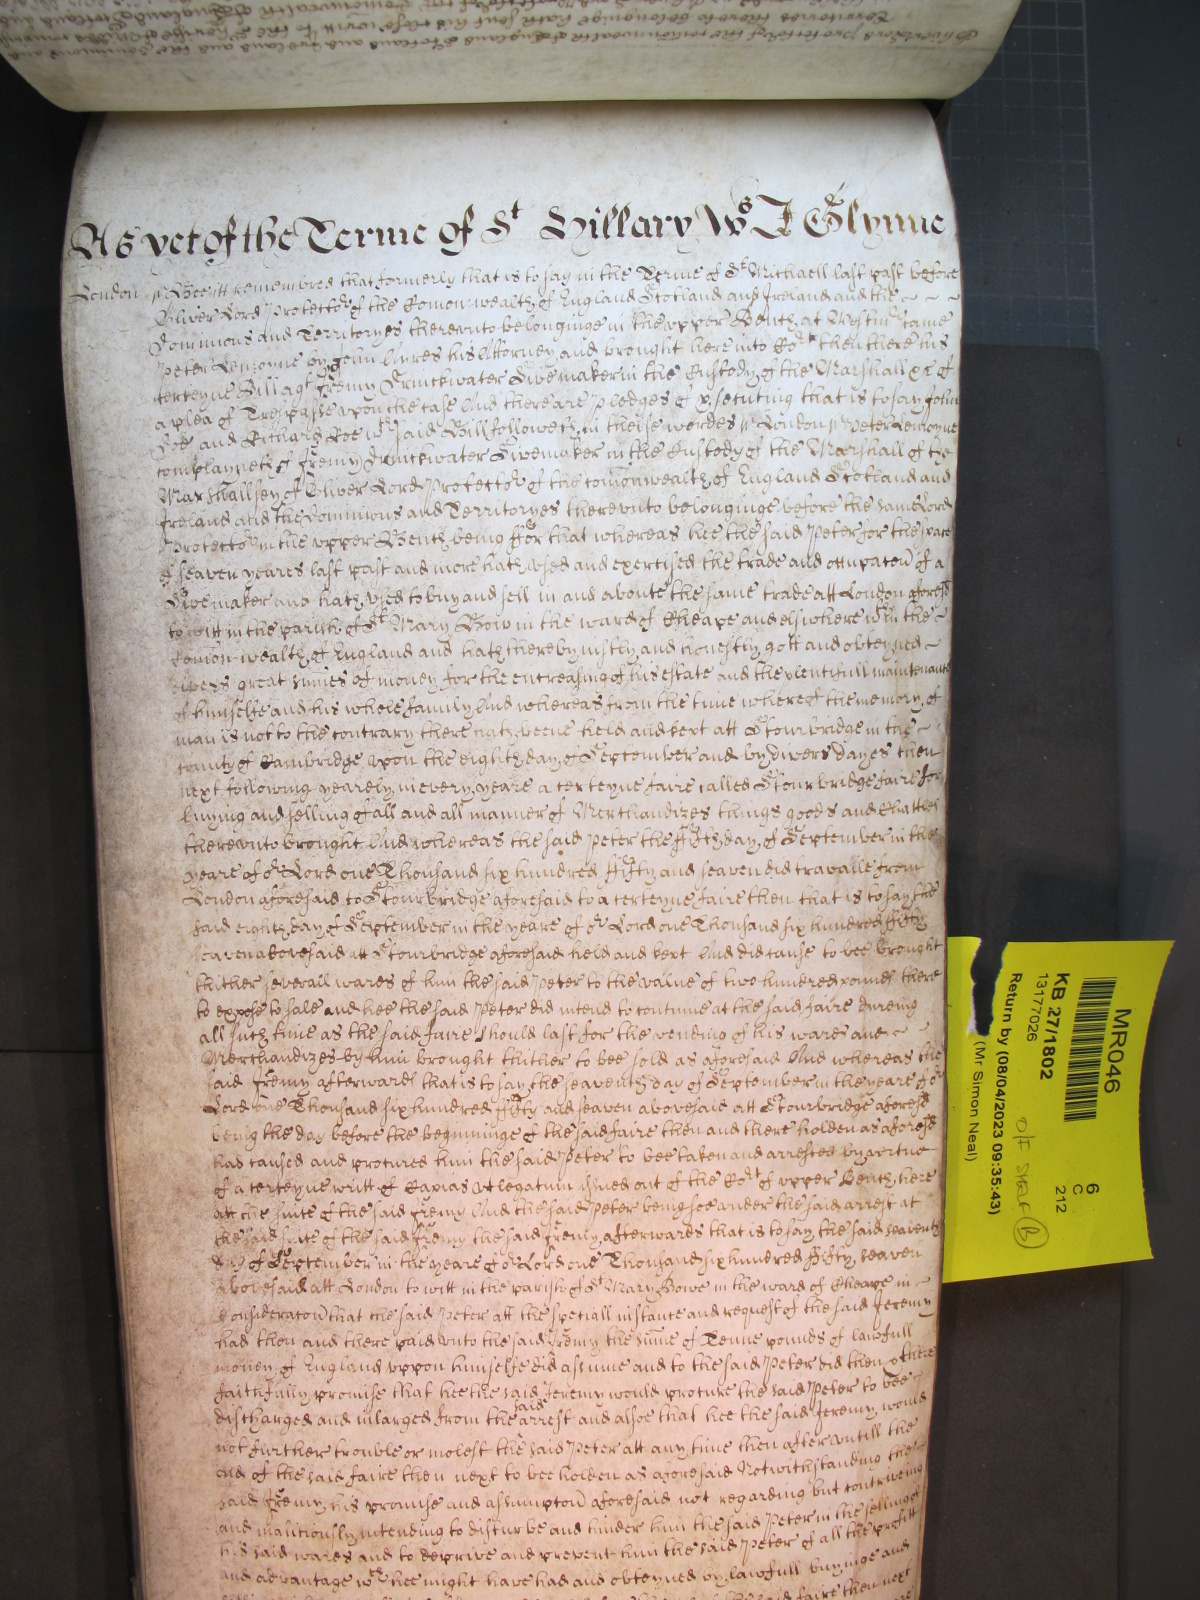 As yet of the Terme of St Hillary Ws J Glynne
London ss Bee itt remembred that formerly that is to say in the Terme of St Michaell last past before
Oliver Lord Protector of the Comon-wealth of England Scotland and Ireland and the
Dominions and Territoryes thereunto belonginge in the upper Bench at Westmr came
Peter Lemoyne by John Ayres his Attorney and brought here into Cort then there his
certeyne Bill agt Jeremy Drinckwater Sivemaker in the Custody of the Marshall &c of
a plea of Trespasse upon the case And there are pledges of psecuting that is to say John
Doe and Richard Roe wch said Bill followeth in theise wordes ss London ss Peter Lemoyne
complayneth of Jeremy Drinckwater Sivemaker in the Custody of the Marshall of the
Marshallsey of Oliver Lord Protector of the comonwealth of England Scotland and
Ireland and the Dominions and Territoryes thereunto belonginge before the same Lord
Protector in the upper Bench being ffor that whereas hee the said Peter for the space
of seaven yeares last past and more hath used and exercised the trade and occupacon of a
Sivemaker and hath used to buy and sell in and aboute the same trade att London aforesd
to witt in the parish of St Mary Bow in the ward of Cheape and elswhere wthin the
Comon-wealth of England and hath thereby justly and honestly gott and obteyned
divers great sumes of money for the encreasing of his estate and the plentifull maintenance
of himselfe and his whole family And whereas from the time whereof the memory of
man is not to the contrary there hath beene held and kept att Stourbridge in the
County of Cambridge upon the eighth day of September and by divers dayes then
next following yearely in every yeare a certeyne faire called Stourbridge faire for
buying and selling of all and all manner of Merchandizes things goods and Chattels
thereunto brought And whereas the said Peter the ffifth day of September in the
yeare of or Lord one Thousand six hundred ffifty and seaven did travaile from
London aforesaid to Stourbridge aforesaid to a certeyne faire then that is to say the
said eighth day of September in the yeare of or Lord one Thousand six hundred ffifty
seaven abovesaid att Stourbridge aforesaid held and kept And did cause to bee brought
thither severall wares of him the said Peter to the value of two hundred pounds there
to expose to sale and hee the said Peter did intend to continue at the said faire dureing
all such time as the said faire should last for the vending of his wares and
Merchandizes by him brought thither to bee sold as aforesaid And whereas the
said Jeremy afterwards that is to say the seaventh day of September in the yeare of or
Lord one Thousand six hundred ffifty and seaven abovesaid att Stourbridge aforesd
being the day before the beginninge of the said faire then and there holden as aforesd
had caused and procured him the said Peter to bee taken and arrested by vertue
of a certeyne writt of Capias Utlegatum issued out of the Cort of upper Bench here
att the suite of the said Jeremy And the said Peter being soe under the said arrest at
the said suite of the said Jeremy the said Jeremy afterwards that is to say the said seaventh
day of September in the yeare of or Lord one Thousand six hundred ffifty seaven
abovesaid att London to witt in the parish of St Mary Bowe in the ward of Cheape in
Consideracon that the said Peter att the speciall instance and request of the said Jeremy
had then and there paid unto the said Jeremy the sume of Tenne pounds of lawfull
money of England uppon himselfe did assume and to the said Peter did then & there
faithfully promise that hee the said Jeremy would procure the said Peter to bee
discharged and inlarged from the said arrest and alsoe that hee the said Jeremy would
not further trouble or molest the said Peter att any time then after untill the
end of the said faire then next to bee holden as aforesaid Notwithstanding the
said Jeremy his promise and assumpcon aforesaid not regarding but contriveing
and malitiously intending to disturbe and hinder him the said Peter in the selling of
his said wares and to deprive and prevent him the said Peter of all the profitt
and advantage wch hee might have had and obteyned by lawfull buyinge and
said faire then next
MR046
6
C
212
KB 27/1802
13177026
Return by (08/04/2023 09:35:43)
(Mr Simon Neal)
O/F Shelf (B)